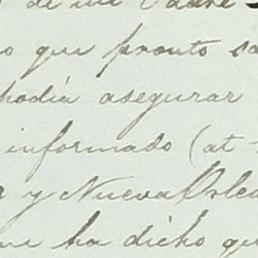 de mi Padre
que pronto
podía asegurar
informado (at
y Nueva Orle
ha dicho qu